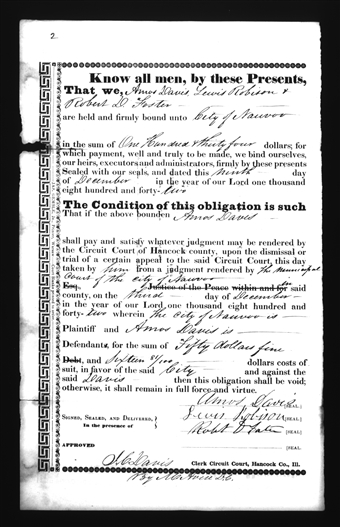 2.
Know all men, by these Presents,
That we, Amos Davis, Lewis Robison &
Robert D. Foster
are held and firmly bound unto City of Nauvoo
in the sum of One Hundred & thirty four dollars; for
which payment, well and truly to be made, we bind ourselves,
our heirs, executors and administrators, firmly by these presents
Sealed with our seals, and dated this ninth day
of December in the year of our Lord one thousand
eight hundred and forty-two
The Condition of this obligation is such
That if the above bounden Amos Davis
shall pay and satisfy whatever judgment may be rendered by
the Circuit Court of Hancock county, upon the dismissal or
trial of a certain appeal to the said Circuit Court, this day
taken by him from a judgment rendered by the Municipal
Court of the City of Nauvoo
Esq. Justice of the Peace within and for said
county, on the third day of December
in the year of our Lord one thousand eight hundred and
forty-two wherein The City of Nauvoo is
Plaintiff and Amos Davis is
Defendants, for the sum of Fifty dollars fine
Debt, and Sixteen dollars costs of
suit, in favor of the said City and against the
said Davis then this obligation shall be void;
otherwise, it shall remain in full force and virtue.
Amos Davis [SEAL.]
SIGNED, SEALED, AND DELIVERED, } Lewis Robison [SEAL.]
In the presence of Robt D Foster [SEAL.]
APPROVED [SEAL.
Davis Clerk Circuit Court, Hancock Co., Ill.
By